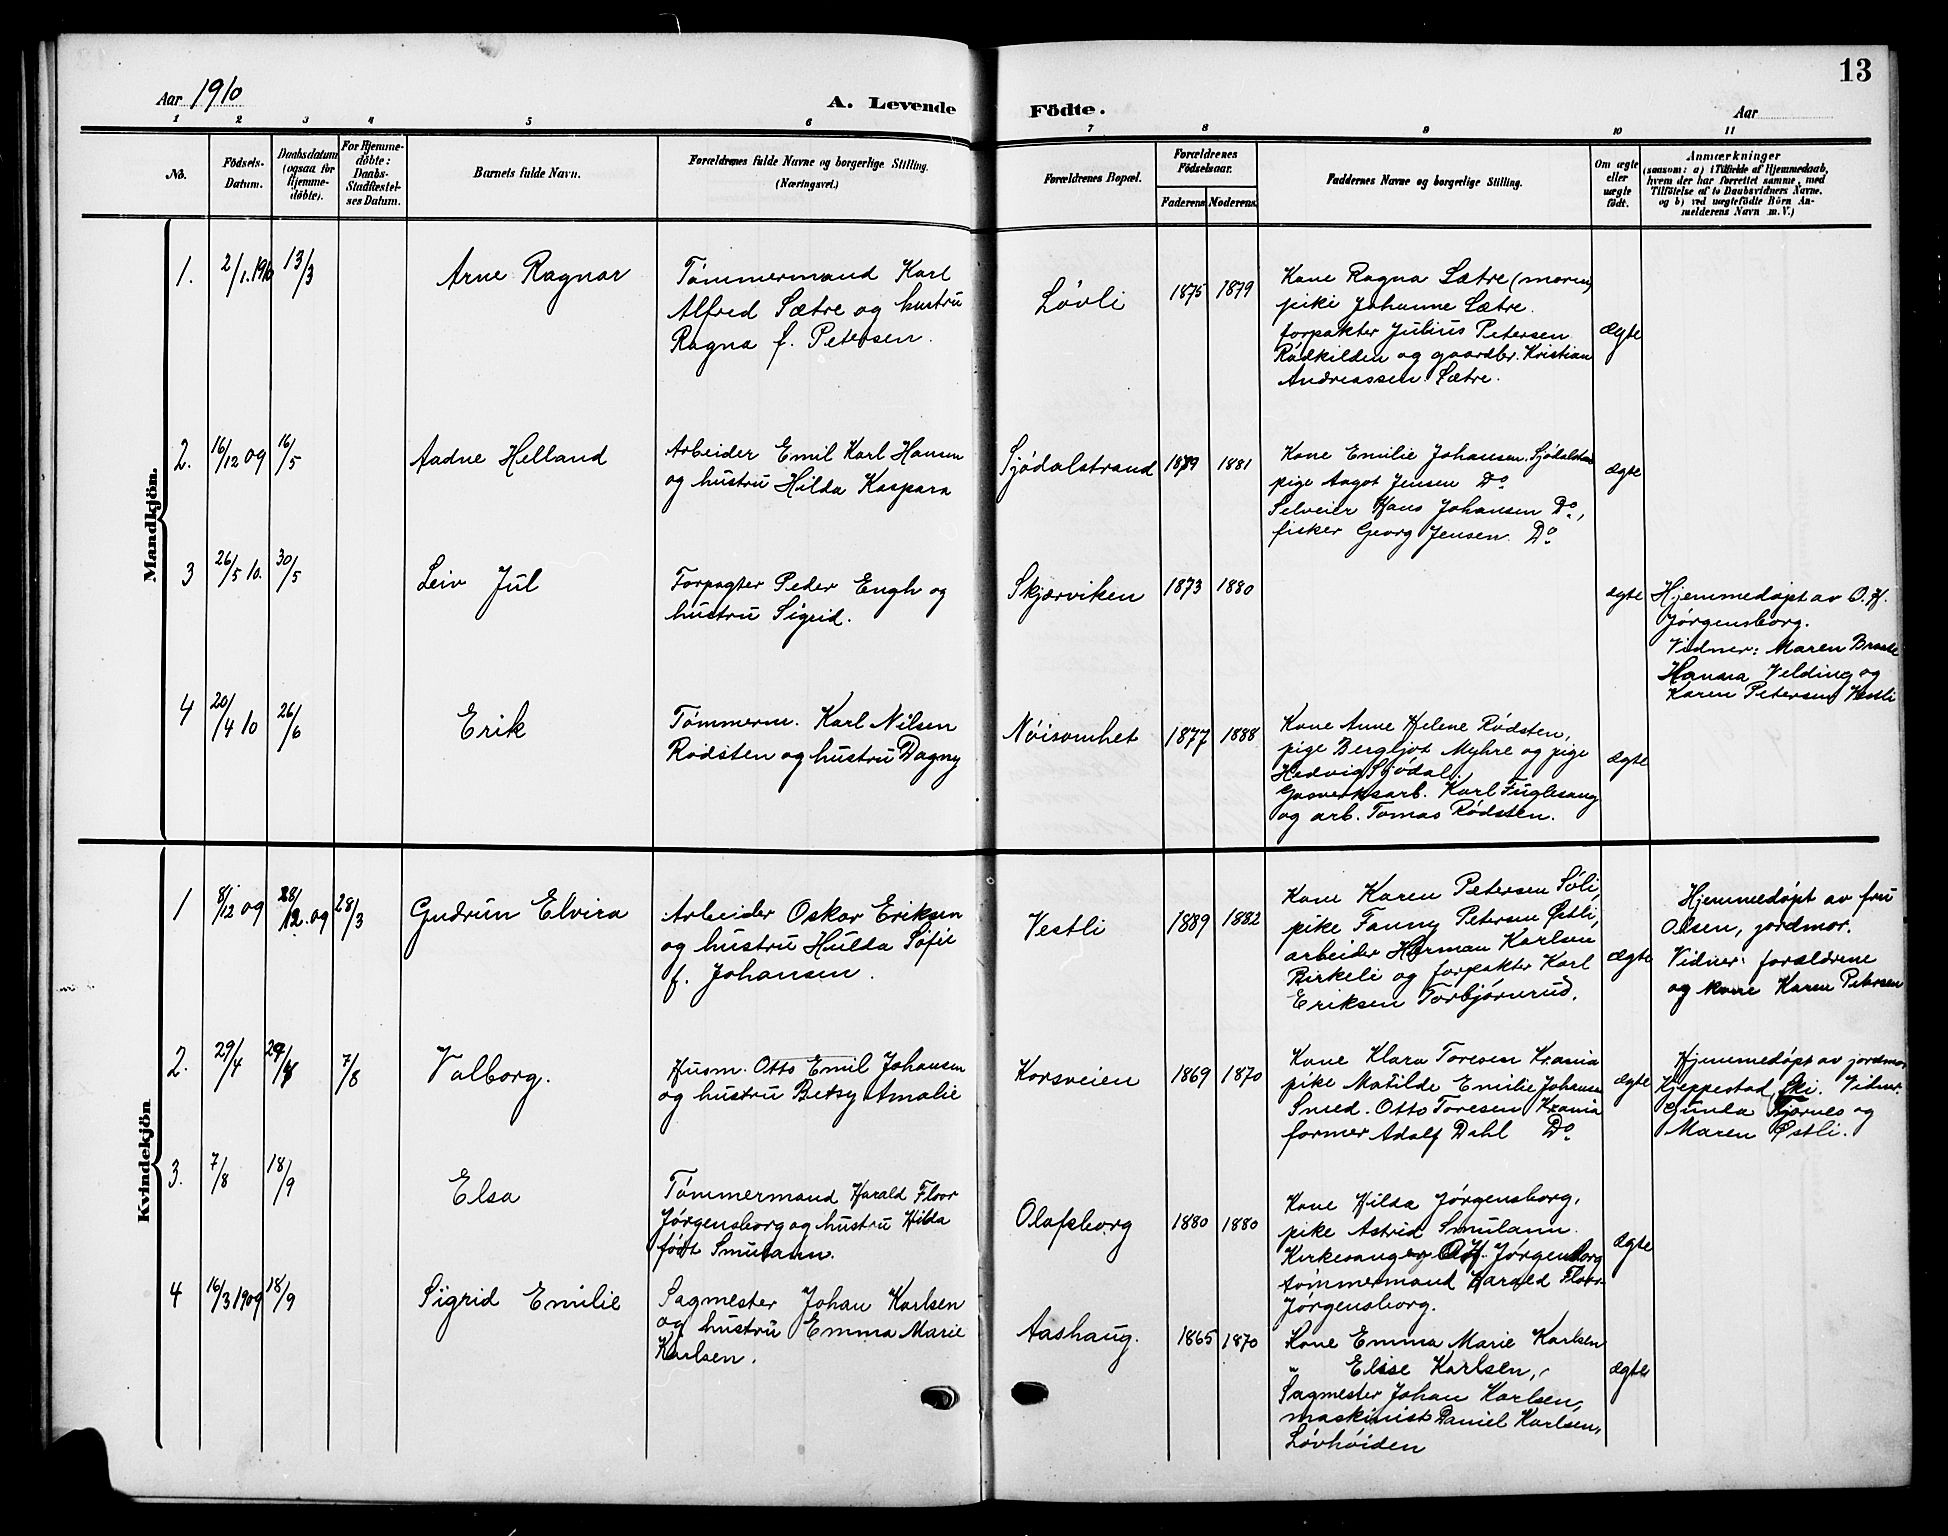 13
Aar 1910
A. Levende Födte.
Aar
1 2 3 4 5 6 7 8 9 10 11
No.
Födsels-
Datum.
Daabsdatum
(ogsaa for
Hjemme-
döbte).
For Hjemme-
döbte:
Daabs-
Stadfæstel-
ses Datum.
Barnets fulde Navn.
Forældrenes fulde Navne og borgerlige Stilling.
(Næringsvei.)
Forældrenes Bopæl.
Forældrenes
Födselsaar.
Faderens Moderens
Faddernes Navne og borgerlige Stilling.
Om ægte
eller
uægte
födt.
Anmærkninger
(saasom: a) i Tilfælde af Hjemmedaab,
hvem der har forrettet samme, med
Tilföielse af to Daabsvidners Navne.
og b) ved uægtefödte Börn An-
melderens Navn m. V.)
Mandkjön.
1. 2/1. 1910 13/3
Arne Ragnar
Tømmermand Karl
Alfred Sætre og hustru
Ragna f. Petersen.
Løvli
1875 1879
Kone Ragna Sætre (moren)
pike Johanne Sætre.
forpakter Julius Petersen
Rødkilden og gaardbr. Kristian
Andreassen Sætre.
ægte
2. 16/12 09 16/5
Aadne Helland
Arbeider Emil Karl Hansen
og hustru Hilda Kaspara
Sjødalstrand
1879 1881
Kone Emilie Johansen. Sjødalstran
pige Aagot Jensen Do
Selveier Hans Johansen Do,
fisker Georg Jensen. Do
ægte
3 26/5 10. 30/5
Leiv Jul
Forpagter Peder Engh og
hustru Sigrid.
Skjærviken
1873 1880
ægte
Hjemmedøpt av O. H.
Jørgensborg.
Vidner: Maren
Hanna Velding og
Karen Petersen Vestli
4 20/4 10 26/6
Erik
Tømmerm. Karl Nilsen
Rødsten og hustru Dagny
Nøisomhet
1877 1888
Kone Anne Helene Rødsten,
pige Bergljot Myhre og pige
Hedvig Sjødal.
Gasverksarb. Karl Fuglesang
og arb. Tomas Rødsten.
ægte
Kvindekjön
1 8/12 09 28/12. 09 28/3
Gudrun Elvira
Arbeider Oskar Eriksen
og hustru Hulda Sofie
f. Johansen.
Vestli
1889 1882
Kone Karen Petersen Søli,
pike Fanny Petersen Østli,
arbeider Herman Karlsen
Birkeli og forpakter Karl
Eriksen Torbjørnrud.
ægte
Hjemmedøpt av fru
Olsen, jordmor.
Vidner: forældrene
og kone Karen Petersen
2. 29/4 29/4 7/8
Valborg.
Husm. Otto Emil Johansen
og hustru Betsy Amalie
Korsveien
1869 1870
Kone Klara Toresen Krania
pike Matilde Emilie Johansen
Smed. Otto Toresen Krania
former Adolf Dahl Do
ægte
Hjemmedøpt av jordmor
Kjeppestad, Ski. Vidner.
Gunla Bjørnes og
Maren Østli.
3. 7/8 18/9
Elsa
Tømmermand Harald Floor
Jørgensborg og hustru Hilda
født Smulann.
Olafsborg
1880 1880
Kone Hilda Jørgensborg,
pike Astrid Smulann.
Kirkesanger O. H. Jørgensborg
tømmermand Harald Floor
Jørgensborg.
ægte
4 16/3 1909 18/9
Sigrid Emilie
Sagmester Johan Karlsen
og hustru Emma Marie
Karlsen.
Aashaug.
1865 1870
Kone Emma Marie Karlsen
" Elise Karlsen,
Sagmester Johan Karlsen,
maskinist Daniel Karlsen,
Løvhøiden
ægte